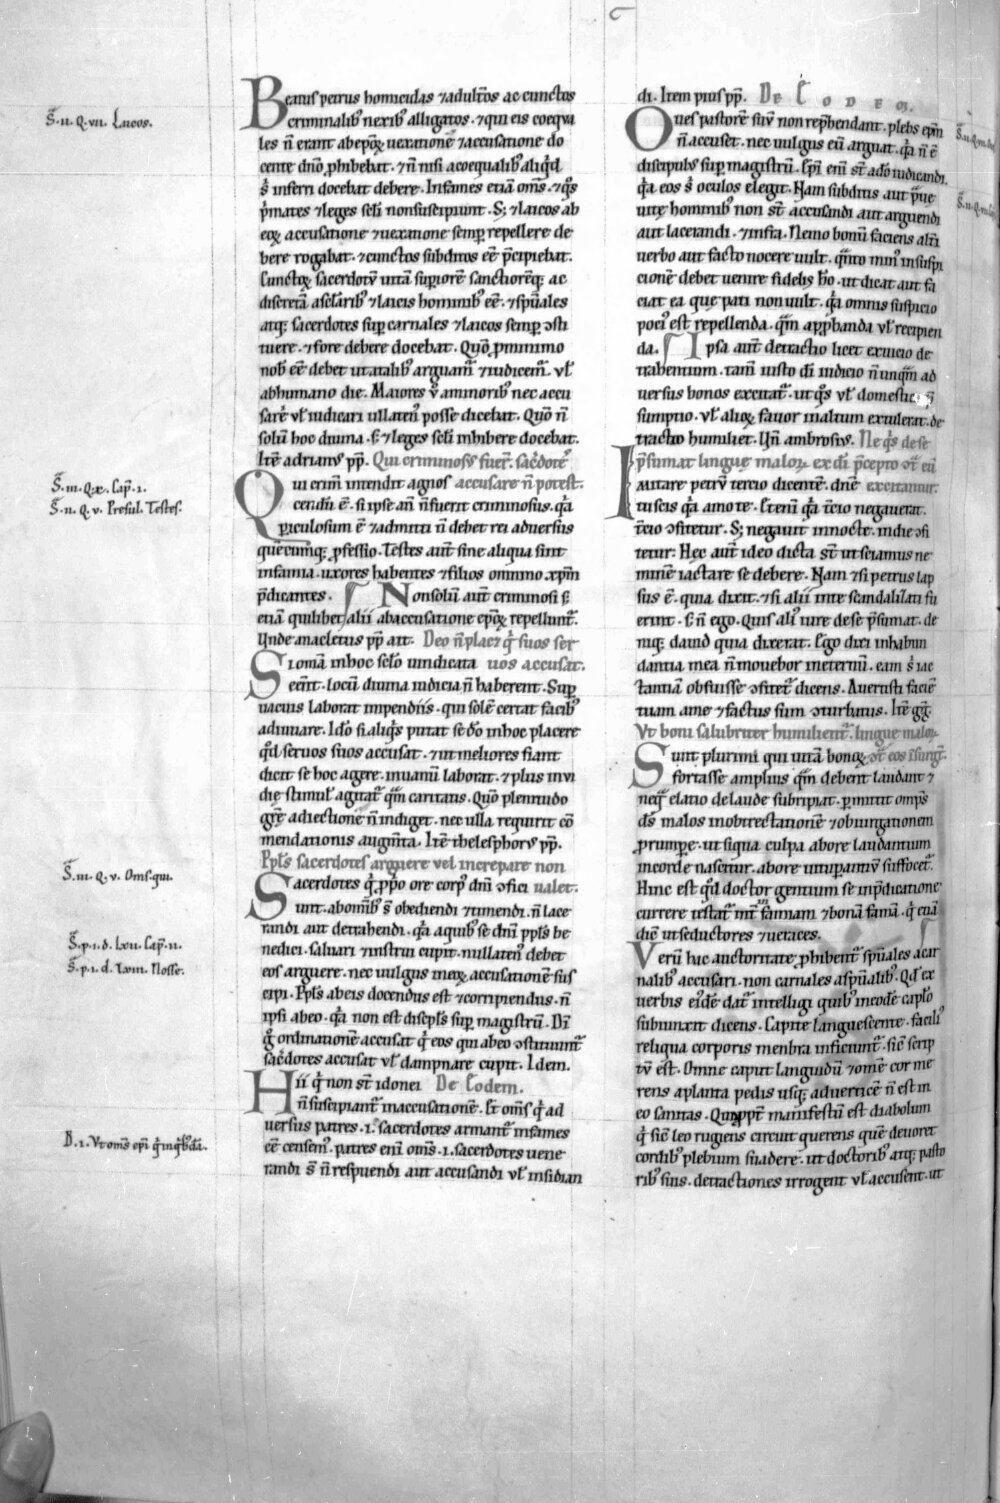 Beatus petrus homicidas ⁊ adult̄os ac cunctos
criminalib; nexib; alligatos. ⁊ qui eis coequa
les n̄ erant ab ep̄oꝝ uexatione ⁊ accusatione do
cente dn̄o ꝓhibebat. ⁊ n̄ nisi a coequalib; aliqͥd
s; inferri docebat debere. Infames etiā om̄s. ⁊ qͦs
pͥmates ⁊ leges scl̄i non suscipiunt. S; ⁊ laicos ab
eoꝝ accusatione ⁊ uexatione semꝑ repellere de
bere rogabat. ⁊ cunctos subditos eē p̄cipiebat.
Cunctoꝝ sacerdotū uitā suꝑiorē sanctiorēq; ac
discretā a sclarib; ⁊ laicis hominib; eē. ⁊ spūales
atq; sacerdotes suꝑ carnales ⁊ laicos semꝑ ɔsti
tuere. ⁊ fore debere docebat. Quō ꝓ minimo
nob̄ eē debet ut a talib; arguam̄ ⁊ iudicem̄. ul̄
ab humano die. Maiores ū a minorib; nec accu
sarē ul̄ iudicari ullaten̄ posse dicebat. Quō n̄
solū hoc diuina. s; ⁊ leges scl̄i inhibere docebat.
Itē adrianus pp̄. Qui criminosus fuer̄. sac̄dotē
Qui crim̄ intendit agnos accusare n̄ potest.
cendū ē. si ipse an̄ n̄ fuerit criminosus. qͣ
ꝑiculosum ē ⁊ admitti n̄ debet rei aduersus
quēcumq; ꝓfessio. Testes aut̄ sine aliqua sint
infamia. uxores habentes ⁊ filios omnino xp̄m
p̄dicantes. Non solū aut̄ criminosi s;
etiā quilibet alii ab accusatione ep̄oꝝ repellunt̄.
Unde anacletus pp̄ ait. Deo n̄ placz qͥ suos ser
Si omā in hoc sclo uindicata uos accusat.
eēnt. locū diuina iudicia n̄ haberent. Suꝑ
uacuis laborat impendiis. qui solē certat facib;
adiuuare. Idō si aliqͥs putat se dō in hoc placere
qͥd seruos suos accusat. ⁊ ut meliores fiant
dicit se hoc agere. in uanū laborat. ⁊ plus inui
die stimul̄ agitat̄ qͣm caritatis. Quō plenitudo
grē adiectionē n̄ indiget. nec ulla requirit cō
mendationis augm̄ta. Itē thelesphorus pp̄.
Ppl̄s sacerdotes arguere uel increpare non
Sacerdotes qͥ ꝓpͥo ore corpꝰ dn̄i ɔfici ualet.
unt. ab omib; s̄ obediendi ⁊ timendi. n̄ lace
randi aut detrahendi. qͣ a quib; se dn̄i ppl̄s be
nedici. saluari ⁊ instrui cupit. nullaten̄ debet
eos arguere. nec uulgus in eoꝝ accusationē sus
cipi. Ppl̄s ab eis docendus est ⁊ corripiendus. n̄
ipsi ab eo. qͣ non est discipl̄s suꝑ magistrū. Di
gͦ ordinationē accusat qͥ eos qui ab eo ɔstituunt̄
sac̄dotes accusat ul̄ dampnare cupit. Idem.
Hii qͥ non st̄ idonei De Eodem.
n̄ suscipiant̄ in accusationē. Et om̄s qͥ ad
uersus patres. i. sacerdotes armant̄ infames
eē censem̄. patres eni om̄s. i. sacerdotes uene
randi s̄ n̄ respuendi aut accusandi ul̄ insidian
di. Item pius pp̄. De Eodem.
Oues pastorē suū non rep̄hendant. plebs ep̄m
n̄ accuset. nec uulgus eū arguat. qͣ n̄ ē
discipulus suꝑ magistrū. Ep̄i eni st̄ a dō iudicandi.
qͣ eos s; oculos elegit. Nam subditis aut p̄ue
uite hominib; non st̄ accusandi aut arguendi
aut lacerandi. ⁊ infra. Nemo bonū faciens alt̄i
uerbo aut facto nocere uult. qͣnto minꝰ in suspi
cionē debet uenire fidelis hō. ut dicat aut fa
ciat ea que pati non uult. qͣ omnis suspicio
pociꝰ est repellenda. qͣm apꝓbanda ul̄ recipien
da. Ipsa aut̄ detractio licet ex uicio de
trahentium. tam̄ iusto dī iudicio n̄ unqͣm ad
uersus bonos excitat̄. ut qͦs ul̄ domestica p̄
sumptio. ul̄ alioꝝ fauor in altum extulerat. de
tractio humiliet. Un̄ ambrosius. Ne qͥs de se
p̄sumat lingue maloꝝ ex dī p̄cepto ɔt̄ eū
Iurare petrū tercio dicentē. dn̄e excitantur.
tu scis qͣ amo te. Eteni qͣ t̄cio negauerat.
t̄cio ɔfitetur. S; negauit in nocte. in die ɔfi
tetur. Hec aut̄ ideo dicta st̄ ut sciamus ne
minē iactare se debere. Nam ⁊ si petrus lap
sus ē. quia dixit. ⁊ si alii in te scandalizati fu
erint. s; n̄ ego. Quis aliꝰ iure de se p̄sumat. de
niq; dauid quia dixerat. Ego dixi in habun
dantia mea n̄ mouebor in eternū. eam s; iac
tantiā obfuisse ɔfitet̄ dicens. Auertisti faciē
tuam a me ⁊ factus sum ɔturbatus. Itē gg̃.
Vt boni salubriter humilient̄. lingue maloꝝ
Sunt plurimi qui uitā bonoꝝ ɔt̄ eos ɔsurgt̄.
fortasse amplius qͣm debent laudant ⁊
neqͣ elatio de laude subripiat. ꝑmittit omp̄s
ds̄ malos in obtrectationē ⁊ obiurgationem
ꝓrumpe. ut si qua culpa ab ore laudantium
in corde nascitur. ab ore uituꝑantiū suffocet̄.
Hinc est qͥd doctor gentium se in p̄dicatione
currere testat̄ int̄ infamiam ⁊ bonā famā. qͥ etiā
dicit̄ ut seductores ⁊ ueraces.
Verū hac auctoritate ꝓhibent̄ spūales a car
nalib; accusari. non carnales a spūalib;. Qd̄ ex
uerbis eiꝰdē dat̄ intelligi quib; in eodē caplo
subiunxit dicens. Capite languescente. faciliꝰ
reliqua corporis menbra inficiunt̄. sic̄ scrip
tū est. Omne caput languidū ⁊ omē cor me
rens a planta pedis usq; ad uerticē n̄ est in
eo sanitas. Quapꝓpt̄ manifestū est diabolum
qͥ sic̄ leo rugiens circuit querens quē deuoret
cordib; plebium suadere. ut doctorib; atq; pasto
rib; suis. detractiones irrogent ul̄ accusent. ut
S̄. ii. Q. vii. Laicos.
S̄. iii. Q. x. Cap̄. i.
S̄. ii. Q. v. Presul. Testes.
S̄. iii. Q. v. Om̄s. qui.
S̄. p. i. d. lxii. Cap̄. ii.
S̄. p. i. d. lxiii. Nosse.